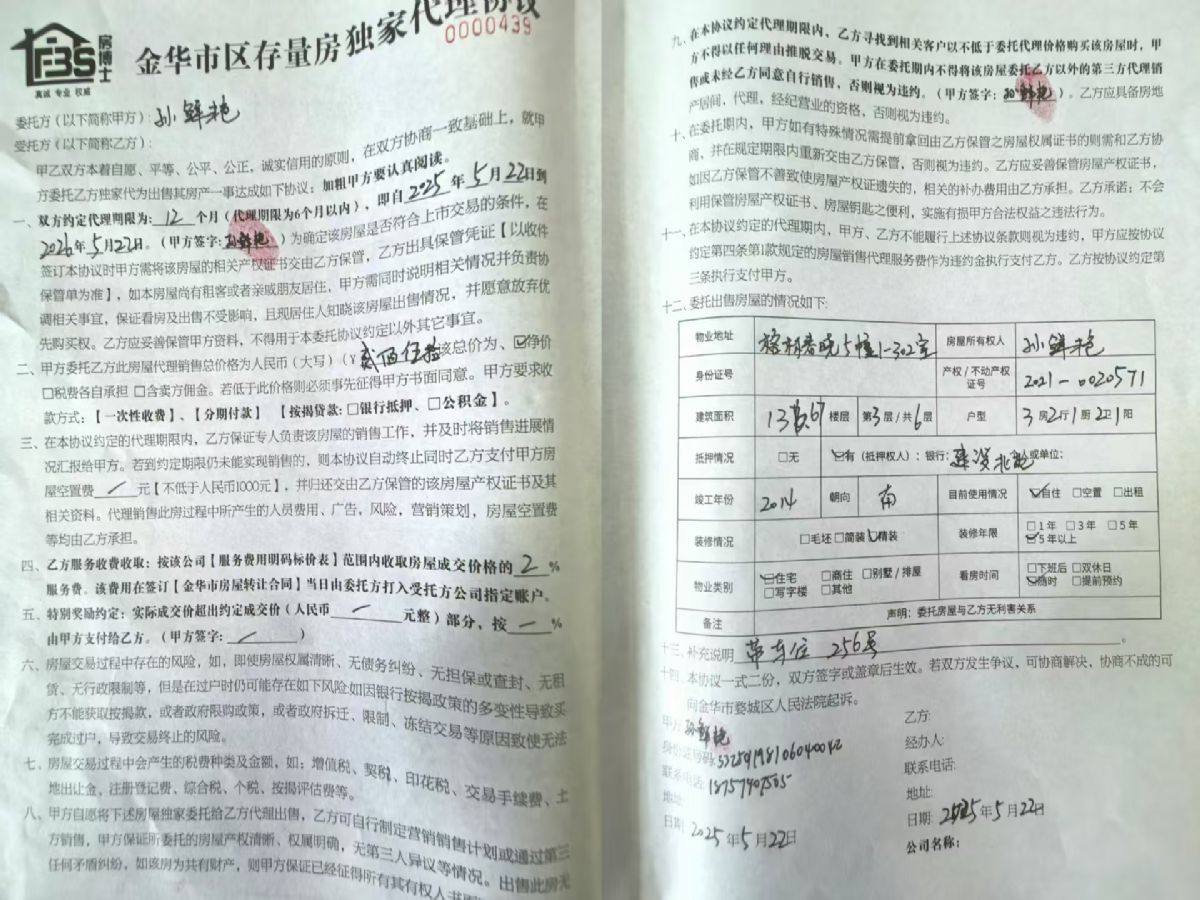 房博士
FBS
真诚 专业 权威
金华市区存量房独家代理协议
0000439
委托方（以下简称甲方）：孙鲜艳
受托方（以下简称乙方）：
甲乙双方本着自愿、平等、公平、公正，诚实信用的原则，在双方协商一致基础上，就甲
方委托乙方独家代为出售其房产一事达成如下协议：加粗甲方要认真阅读。
一、双方约定代理期限为：12 个月（代理期限为6个月以内），即自2025年5月22日到
2026年5月22日。（甲方签字：孙鲜艳）为确定该房屋是否符合上市交易的条件，在
签订本协议时甲方需将该房屋的相关产权证书交由乙方保管，乙方出具保管凭证【以收件
保管单为准】，如本房屋尚有租客或者亲戚朋友居住，甲方需同时说明相关情况并负责协
调相关事宜，保证看房及出售不受影响，且现居住人知晓该房屋出售情况，并愿意放弃优
先购买权。乙方应妥善保管甲方资料，不得用于本委托协议约定以外其它事宜。
二、甲方委托乙方此房屋代理销售总价格为人民币（大写）（¥贰佰伍拾 该总价为、☑净价
□税费各自承担 □含卖方佣金。若低于此价格则必须事先征得甲方书面同意。甲方要求收
款方式：【一次性收费】、【分期付款】 【按揭贷款：□银行抵押、□公积金】。
三、在本协议约定的代理期限内，乙方保证专人负责该房屋的销售工作，并及时将销售进展情
况汇报给甲方。若到约定期限仍未能实现销售的，则本协议自动终止同时乙方支付甲方房
屋空置费 / 元【不低于人民币1000元】，并归还交由乙方保管的该房屋产权证书及其
相关资料。代理销售此房过程中所产生的人员费用、广告，风险，营销策划，房屋空置费
等均由乙方承担。
四、乙方服务收费收取：按该公司【服务费用明码标价表】范围内收取房屋成交价格的 2 %
服务费。该费用在签订【金华市房屋转让合同】当日由委托方打入受托方公司指定账户。
五、特别奖励约定：实际成交价超出约定成交价（人民币 / 元整）部分，按 — %
由甲方支付给乙方。（甲方签字： / ）
六、房屋交易过程中存在的风险，如，即使房屋权属清晰、无债务纠纷，无担保或查封、无租
赁、无行政限制等，但是在过户时仍可能存在如下风险：如因银行按揭政策的多变性导致买
方不能获取按揭款，或者政府限购政策，或者政府拆迁、限制、冻结交易等原因致使无法
完成过户，导致交易终止的风险。
七、房屋交易过程中会产生的税费种类及金额，如：增值税、契税、印花税、交易手续费、土
地出让金，注册登记费、综合税、个税、按揭评估费等。
八、甲方自愿将下述房屋独家委托给乙方代理出售，乙方可自行制定营销销售计划或通过第三
方销售，甲方保证所委托的房屋产权清晰、权属明确，无第三人异议等情况。出售此房无
任何矛盾纠纷，如该房为共有财产，则甲方保证已经征得所有其有权人
九、在本协议约定代理期限内，乙方寻找到相关客户以不低于委托代理价格购买该房屋时，甲
方不得以任何理由推脱交易。甲方在委托期内不得将该房屋委托乙方以外的第三方代理销
售或未经乙方同意自行销售，否则视为违约。（甲方签字：孙鲜艳）。乙方应具备房地
产居间，代理，经纪营业的资格，否则视为违约。
十、在委托期内，甲方如有特殊情况需提前拿回由乙方保管之房屋权属证书的则需和乙方协
商、并在规定期限内重新交由乙方保管，否则视为违约。乙方应妥善保管房屋产权证书，
如因乙方保管不善致使房屋产权证遗失的，相关的补办费用由乙方承担。乙方承诺：不会
利用保管房屋产权证书、房屋钥匙之便利，实施有损甲方合法权益之违法行为。
十一、在本协议约定的代理期内，甲方、乙方不能履行上述协议条款则视为违约，甲方应按协议
约定第四条第1款规定的房屋销售代理服务费作为违约金执行支付乙方。乙方按协议约定第
三条执行支付甲方。
十二、委托出售房屋的情况如下：
物业地址 榕林春晓5幢1-302室 房屋所有权人 孙鲜艳
身份证号 产权/不动产权证号 2021-0020571
建筑面积 楼层 第3层/共6层 户型 3房2厅1厨2卫1阳
抵押情况 □无 ☑有（抵押权人）：银行：或单位：
竣工年份 2014 朝向 南 目前使用情况 ☑自住 □空置 □出租
装修情况 □毛坯 □简装 ☑精装 装修年限 □1年 □3年 □5年 ☑5年以上
物业类别 ☑住宅 □商住 □别墅/排屋 □写字楼 □其他 看房时间 □下班后 □双休日 ☑随时 □提前预约
备注 声明：委托房屋与乙方无利害关系
十三、补充说明 带车位 256号。
十四、本协议一式二份，双方签字或盖章后生效。若双方发生争议，可协商解决，协商不成的可
向金华市婺城区人民法院起诉。
甲方：孙鲜艳
乙方：
身份证号码：
经办人：
联系电话：18757907585
联系电话：
地址：
地址：
日期：2025年5月22日
日期：2025年5月22日
公司名称：